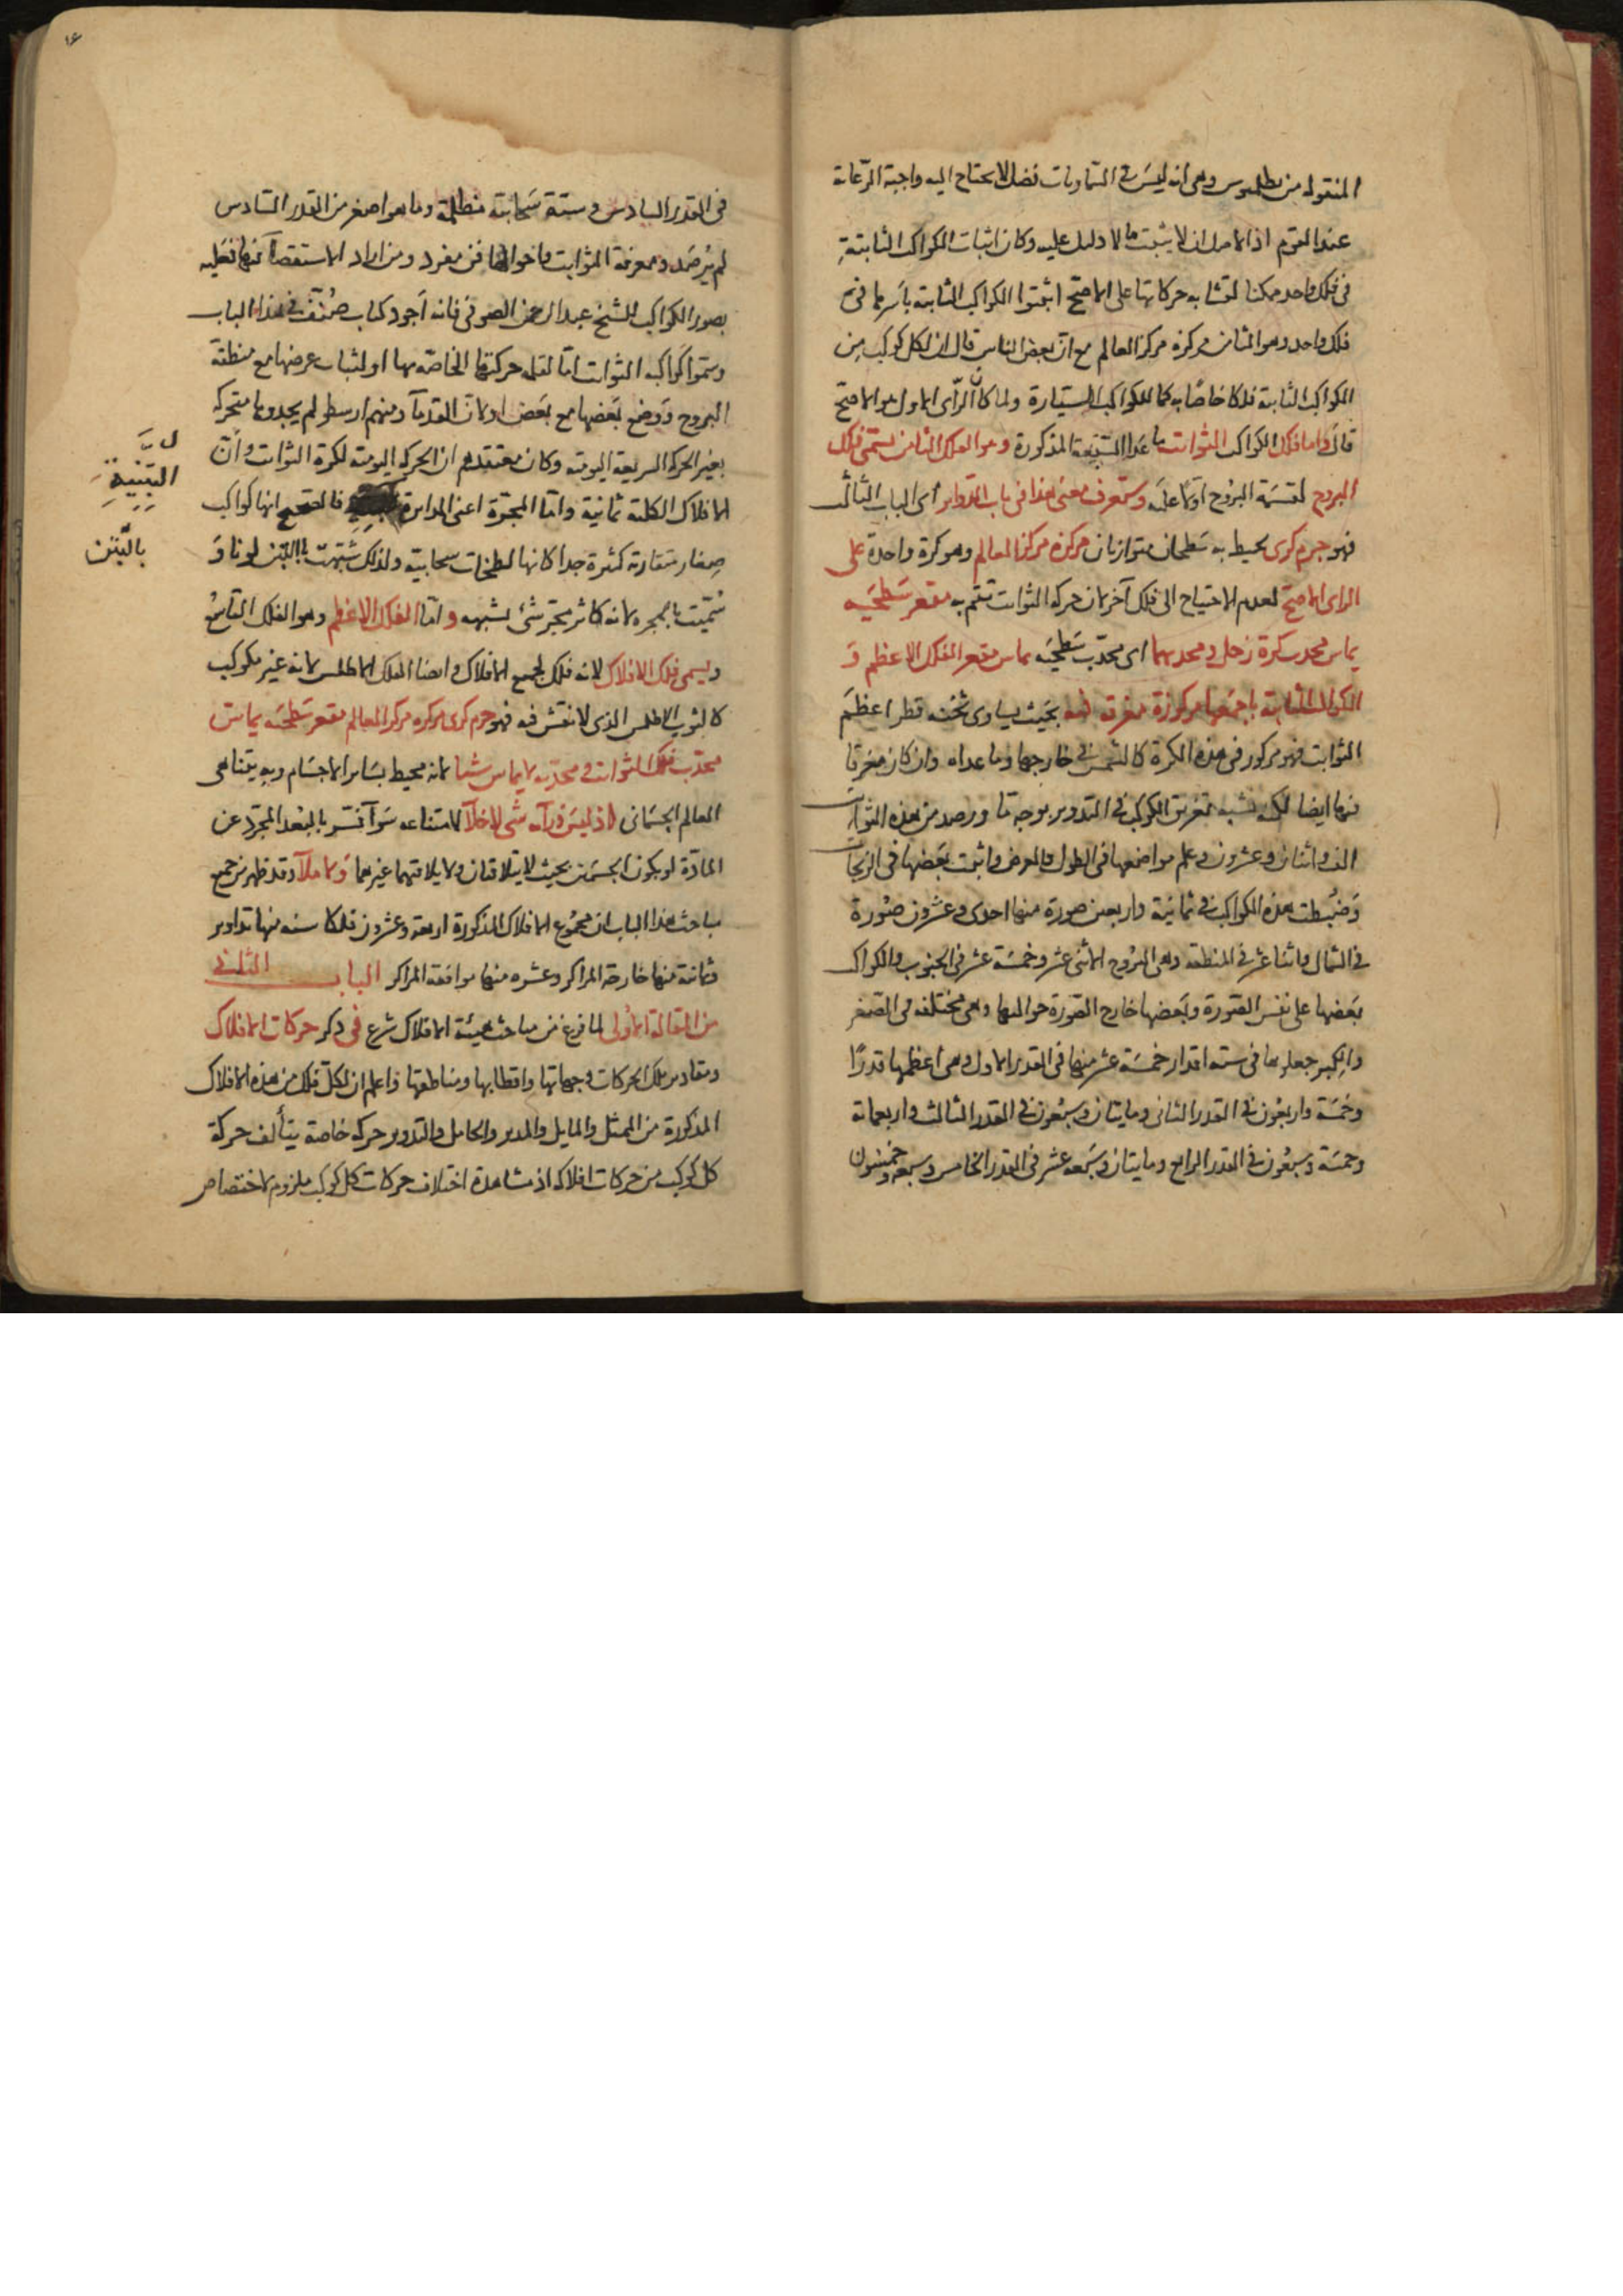 المنقولة من بطلميوس وهى انه ليس فى السماويات فضل لا يحتاج اليه واجبة الرعاية
عند القوم اذ الاصل ان لا يثبت ما لا دليل عليه وكان اثبات الكواكب الثابتة
فى فلك واحد ممكنا لتشابه حركاتها على الاصح اثبتوا الكواكب الثابتة باسرها فى
فلك واحد وهو الثامن مركزه مركز العالم مع ان بعض الناس قال ان لكل كوكب من
الكواكب الثابتة فلكا خاصا به كما للكواكب السيارة ولما كان الرأى الاول هو الاصح
قال واما فلك الكواكب الثوابت ما عدا السبعة المذكورة وهو الفلك الثامن يسمى فلك
البروج لقسمة البروج اولا عليه وستعرف معنى هذا فى باب الدواير اى الباب الثالث
فهو جرم كرى يحيط به سطحان متوازيان مركزه مركز العالم وهو كرة واحدة على
الراى الاصح لعدم الاحتياج الى فلك آخر لان حركة الثوابت تتم به مقعر سطحيه
يماس محدب كرة زحل ومحدبهما اى محدب سطحيه يماس مقعر الفلك الاعظم و
الكواكب الثابتة باجمعها مركوزة مغرقة فيه بحيث يساوى ثخنه قطر اعظم
الثوابت فهو مركوز فى هذه الكرة كالشمس فى خارجها وما عداه وان كان مغرقا
فيها ايضا لكنه يشبه تغريق الكوكب فى التدوير بوجه ما ورصد من هذه الثوابت
الف واثنان وعشرون وعلم مواضعها فى الطول والعرض واثبت بعضها فى الزيجات
وضبطت هذه الكواكب فى ثمانية واربعين صورة منها احدى وعشرون صورة
فى الشمال واثنا عشر فى المنطقة وهى البروج الاثنى عشر وخمسة عشر فى الجنوب والكواكب
بعضها على نفس الصورة وبعضها خارج الصورة حواليها وهى مختلفة فى الصغر
والكبر جعلوها فى ستة اقدار خمسة عشر منها فى القدر الاول وهى اعظمها قدرًا
وخمسة واربعون فى القدر الثانى ومايتان وسبعون فى القدر الثالث واربعماية
وخمسة وسبعون فى القدر الرابع ومايتان وسبعة عشر فى القدر الخامس وسبعة وخمسون
١٤
فى القدر السادس وستة سحابية مظلمة وما هو اصغر من القدر السادس
لم يرصد ومعرفة الثوابت واحوالها فن مفرد ومن اراد الاستقصآء فيها فعليه
بصور الكواكب للشيخ عبد الرحمن الصوفى فانه اجود كتاب صُنّف فى هذا الباب
وسموا كواكبه الثوابت اما لقلة حركتها الخاصة بها او لثبات عرضها مع منطقة
البروج ووضع بعضها مع بعض او لان القدمآء ومنهم ارسطو لم يجدوها متحركة
بغير الحركة السريعة اليومية وكان معتقدهم ان الحركة اليومية لكرة الثوابت وان
الافلاك الكلية ثمانية واما المجرة اعنى الدايرة فالصحيح انها كواكب
صغار متقاربة كثيرة جدا كانها لطخات سحابية ولذلك شبهت بالتبن لونا و
سُمّيت بالمجرة لانه كاثر مجر شئ يشبهه واما الفلك الاعظم وهو الفلك التاسع
ويسمى فلك الافلاك لانه فلك لجميع الافلاك وايضا الفلك الاطلس لانه غير مكوكب
كالثوب الاطلس الذى لا نقش فيه فهو جرم كرى مركزه مركز العالم مقعر سطحيه يماس
محدب فلك الثوابت ومحدبه لا يماس شيا لانه محيط بساير الاجسام وبه يتناهى
العالم الجسمانى اذ ليس ورآءه شئ لا خلآء لامتناعه سوآء فسر بالبعد المجرد عن
المادة او بكون الجسمين بحيث لا يتلاقيان ولا يلاقيهما غيرهما ولا ملآء وقد ظهر من جميع
مباحث هذا الباب ان مجموع الافلاك المذكورة اربعة وعشرون فلكا ستة منها تداوير
وثمانية منها خارجة المراكز وعشرة منها موافقة المراكز الباب الثانى
من المقالة الاولى لما فرغ من مباحث هيئة الافلاك شرع فى ذكر حركات الافلاك
ومقادير تلك الحركات وجهاتها واقطابها ومناطقها واعلم ان لكل فلك من هذه الافلاك
المذكورة من الممثل والمايل والمدير والحامل والتدوير حركة خاصة يتألف حركة
كل كوكب من حركات افلاكه اذ مشاهدة اختلاف حركات كل كوكب ملزوم لاختصاص
اللبنية
بالتبن